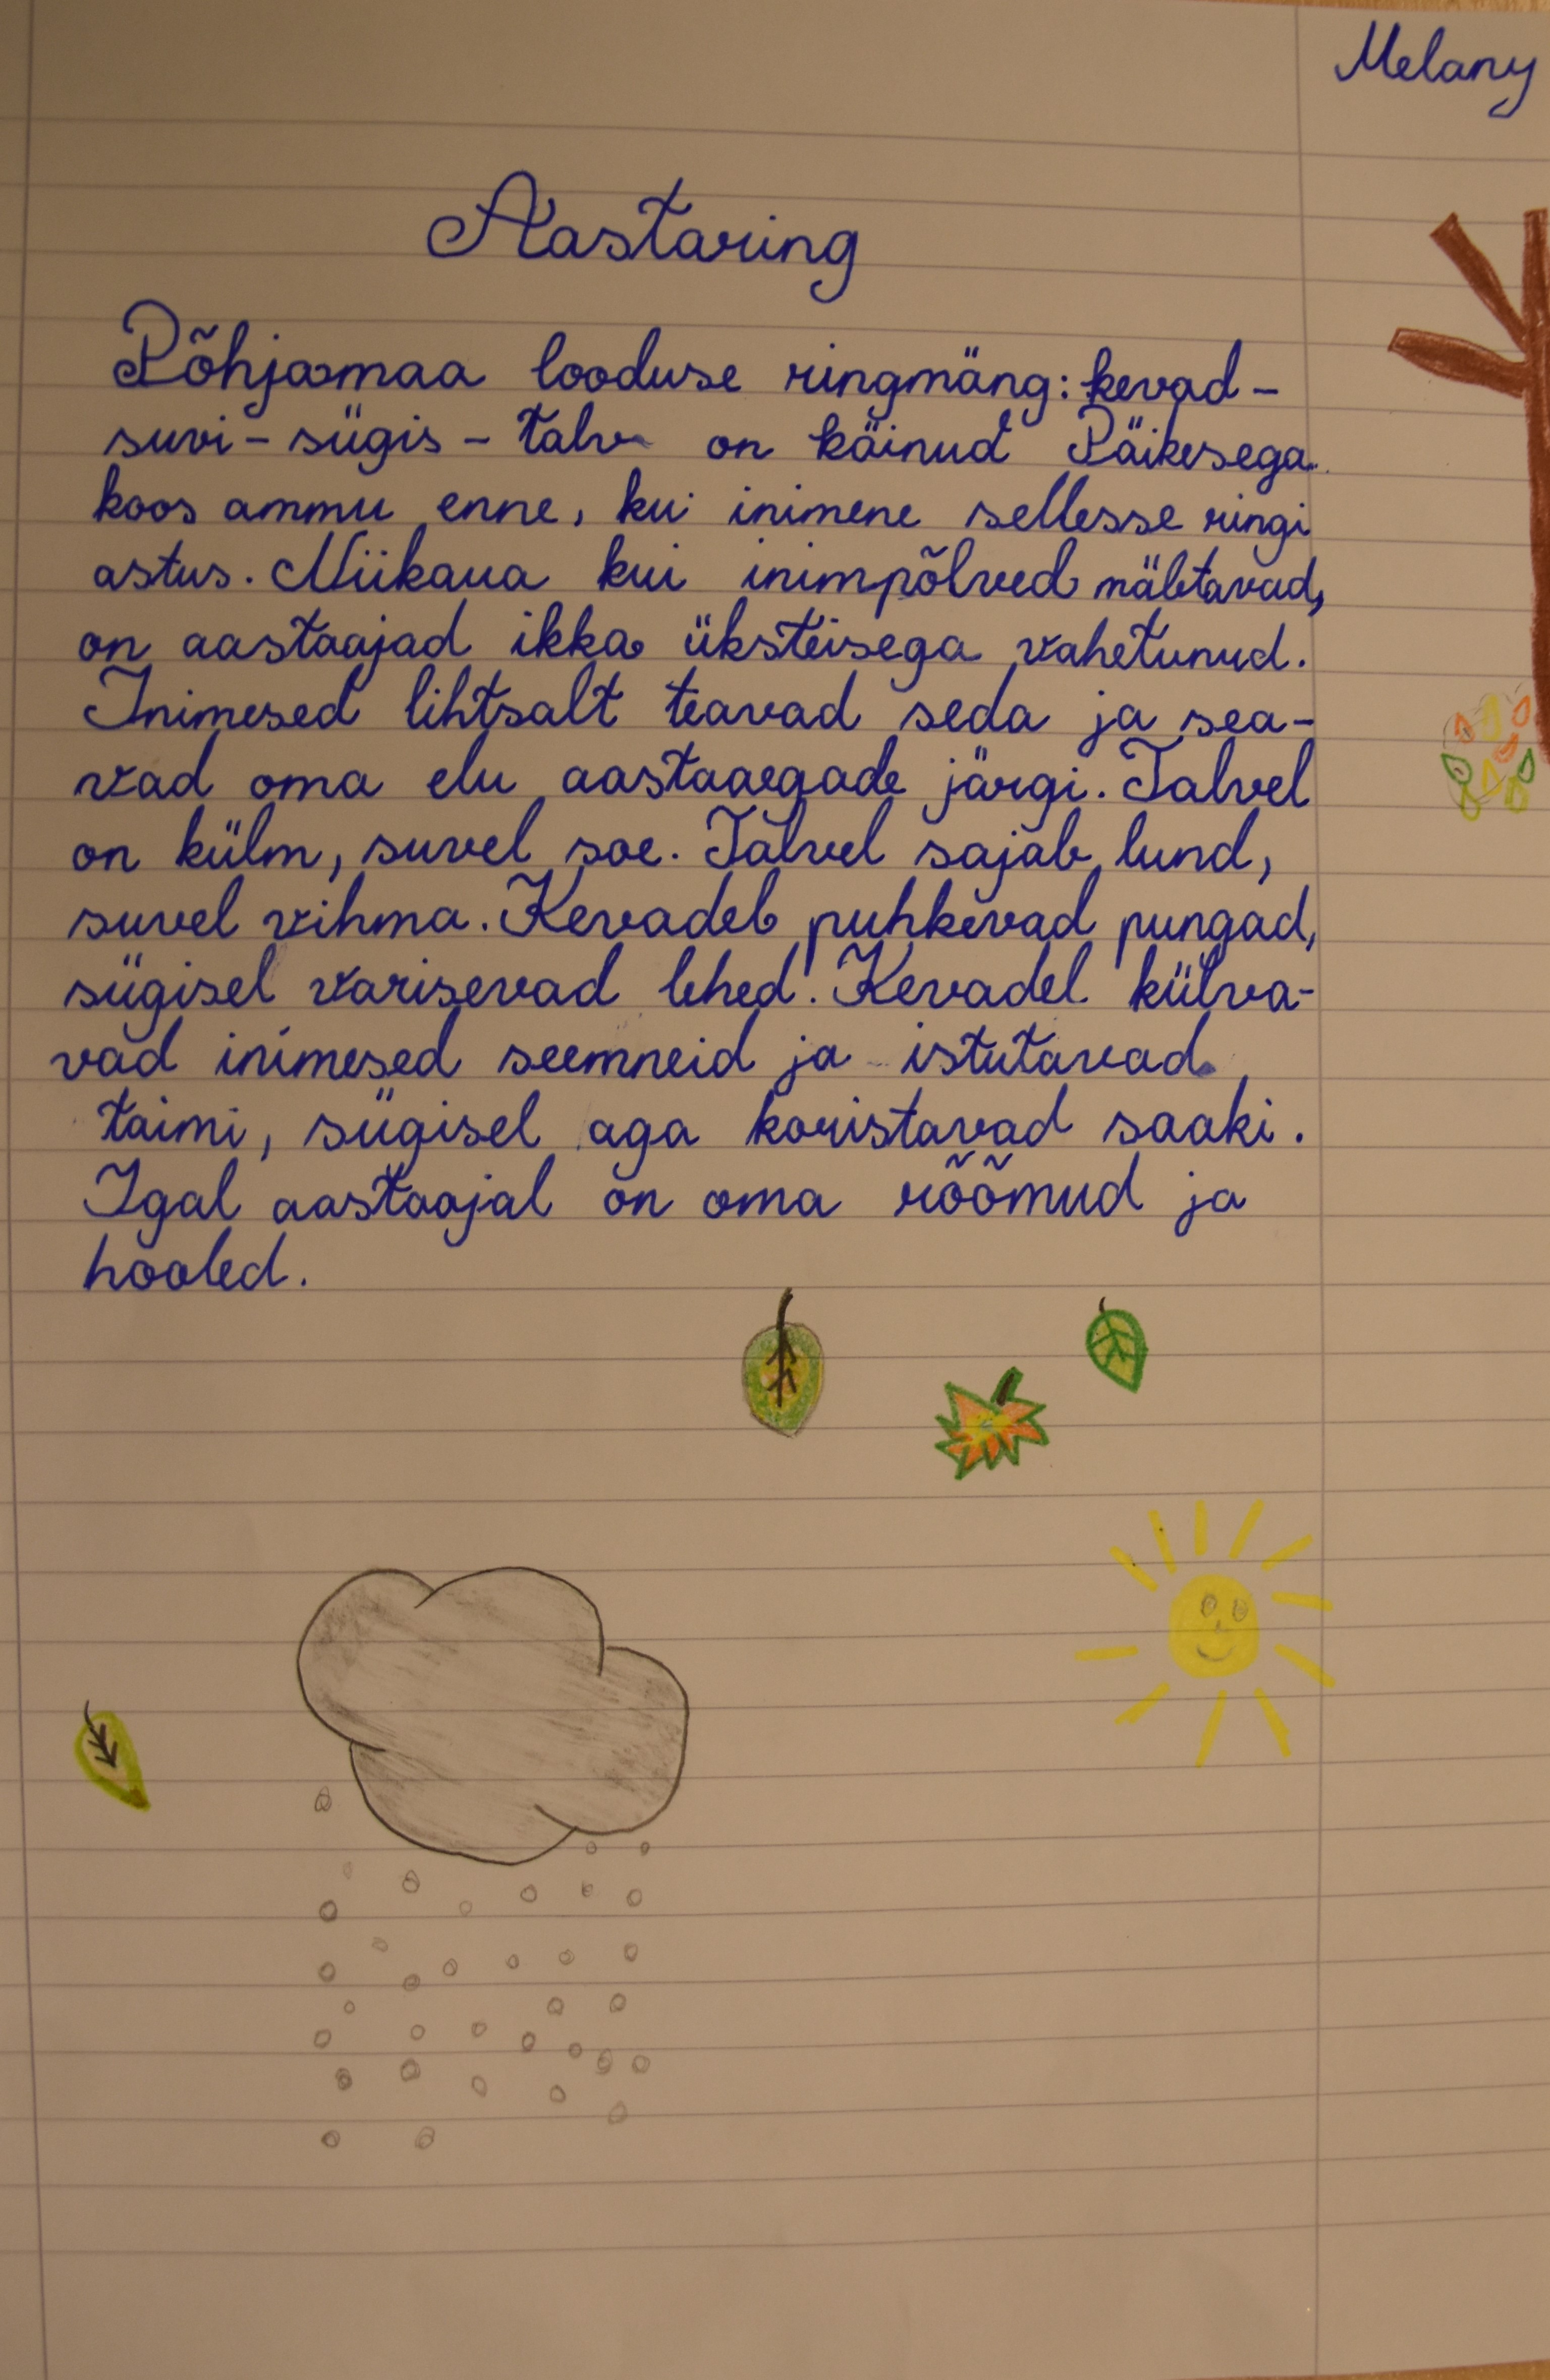 Melany
Aastaring
Põhjamaa looduse ringmäng: kevad-
suvi - sügis - talv on käinud Päikesega
koos ammu enne, kui inimene sellesse ringi
astus. Niikaua kui inimpõlved mäletavad,
on aastaajad ikka üksteisega vahetunud.
Inimesed lihtsalt teavad seda ja sea-
vad oma elu aastaaegade järgi. Talvel
on külm, suvel soe. Talvel sajab lund,
suvel vihma. Kevadel puhkevad pungad,
sügisel varisevad lehed. Kevadel külva-
vad inimesed seemneid ja istutavad
taimi, sügisel aga koristavad saaki.
Igal aastaajal on oma rõõmud ja
hooled.